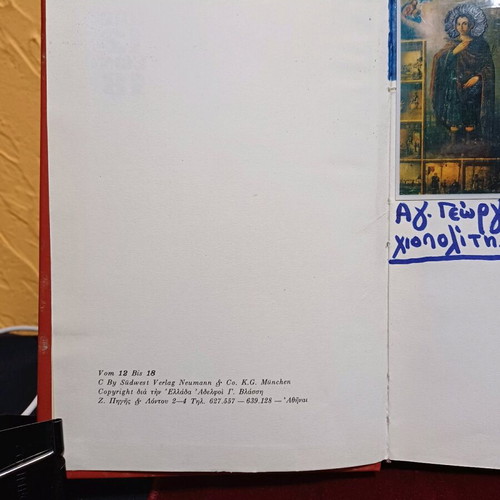 Vom 12 Bis 18
C By Südwest Verlag Neumann & Co. K.G. München
Copyright διὰ τὴν Ἑλλάδα Ἀδελφοὶ Γ. Βλάσση
Ζ. Πηγῆς & Λόντου 2—4 Τηλ. 627.557 — 639.128 — Ἀθῆναι
Αγ. Γεώργ
χιοπολίτη